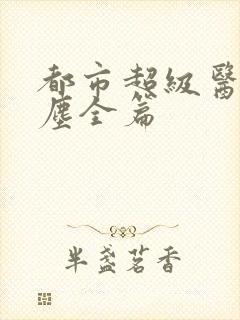 都市超級醫
塵全篇
半盞茗香